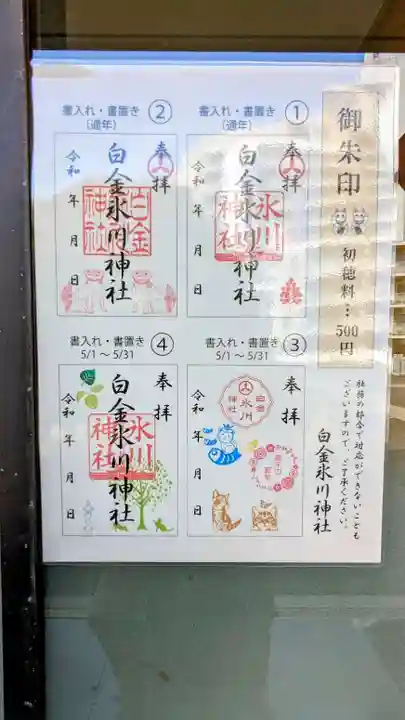 御朱印
初穂料…500円
書入れ・書置き ①
(通年)
奉拝
白金氷川神社
氷川神社
令和
年 月 日
書入れ・書置き ②
(通年)
奉拝
白金氷川神社
白金神社
令和
年 月 日
書入れ・書置き ③
5/1～5/31
奉拝
白金
氷川
神社
令和
年 月 日
書入れ・書置き ④
5/1～5/31
奉拝
白金氷川神社
氷川神社
令和
年 月 日
社務の都合で対応ができないことも
ございますので、ご了承ください。
白金氷川神社